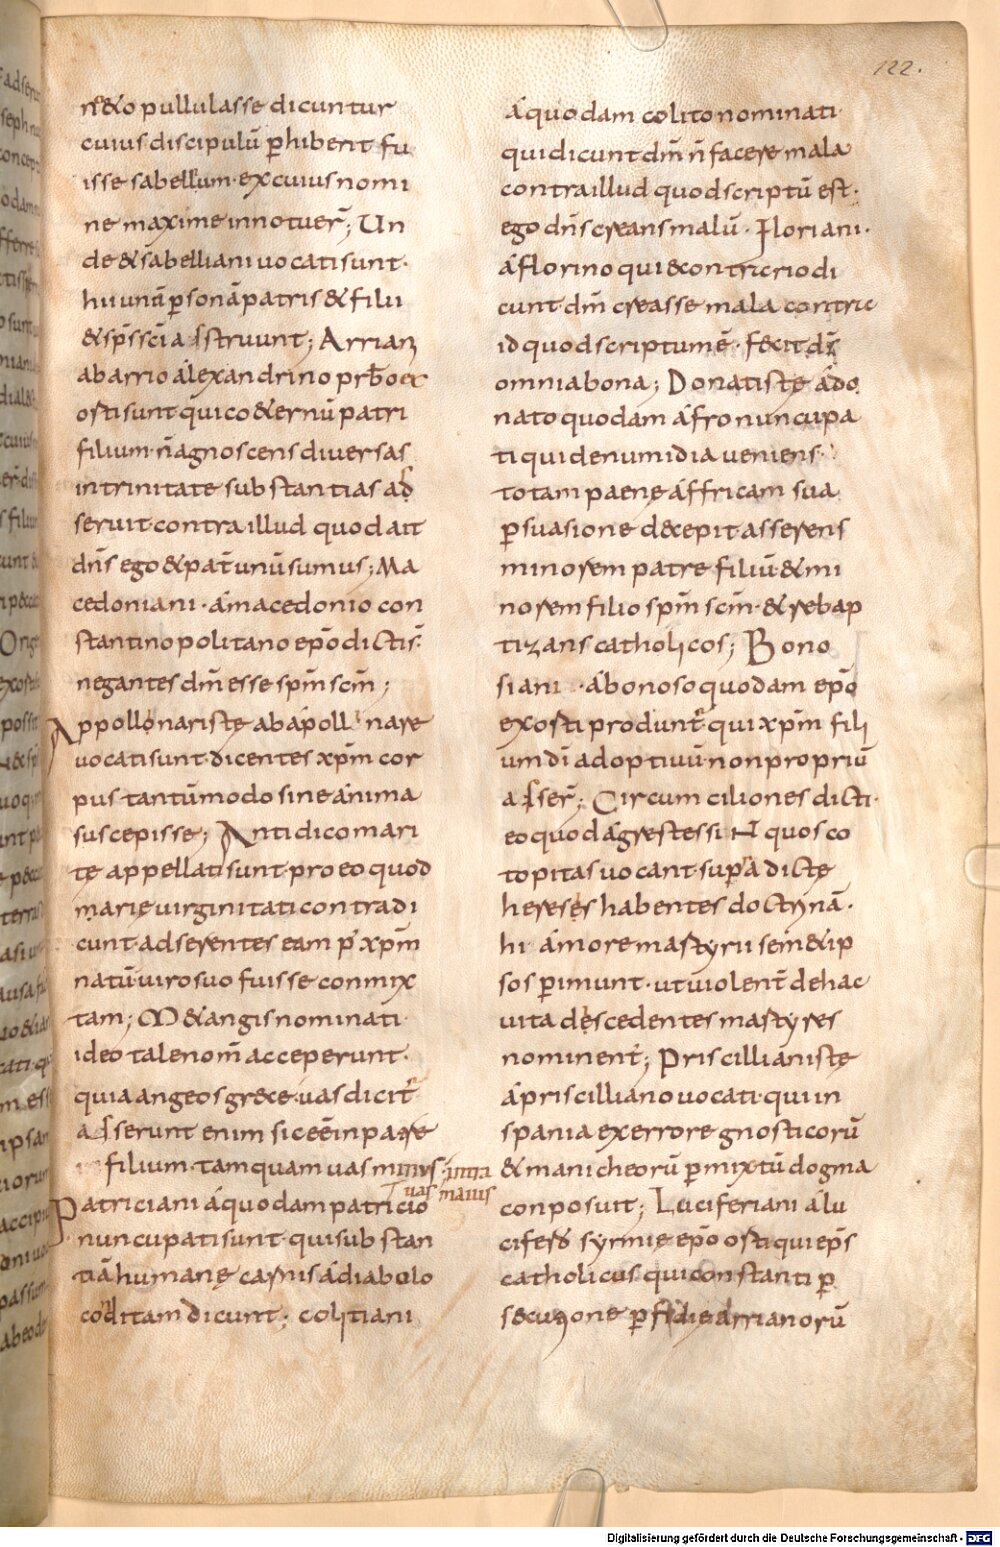 122.
n&o pullulasse dicuntur
cuius discipulū phibent fu
isse sabellium· excuius nomi
ne maxime innotuer̄; Un
de & sabelliani uocati sunt·
hii unā psonā patris & filii
& sps̄ sc̄i asstruunt; Arrian
ab arrio alexandrino prb̄o ex
osti sunt qui co&ernū patri
filium· n̄ agnoscens diuersas
in trinitate substantias ad
seruit· contra illud quod ait
dn̄s ego & pat̄ unū sumus; Ma
cedoniani· a macedonio con
stantinopolitano ep̄o dicti s̄·
negantes dm̄ esse spm̄ scm̄;
Appollonariste ab apollinare
uocati sunt· dicentes xpm̄ cor
pus tantūmodo sine anima
suscepisse; Antidicomari
tę appellati sunt· pro eo quod
marię uirginitati contradi
cunt· adserentes eam p' xpm̄
natū· uiro suo fuisse conmix
tam; M&angis nominati·
ideo tale nom̄ acceperunt·
quia angeos grece· uas dicit̄
adserunt enim sic eē in patre
filium· tamquam uas minus· intra
uas maius
Patriciani a quodam patricio
nuncupati sunt· qui substan
tiā humanę carnis a diabolo
conditam dicunt; colitiani
a quodam colito nominati·
qui dicunt dm̄ n̄ facere mala
contra illud quod scriptū est·
ego dn̄s creans malū· Floriani·
a florino qui econtrario di
cunt· dm̄ creasse mala contra
id quod scriptum ē· fecit ds̄
omnia bona; Donatistę a do
nato quodam afro nuncupa
ti qui de numidia ueniens·
totam paenę affricam sua
psuasione decepit asserens
minorem patre filiū· & mi
norem filio spm̄ scm̄· & rebap
tizans catholicos; Bono
siani· a bonoso quodam ep̄o
exosti produnt̄ qui xpm̄ fili
um dī adoptiuū· non propriū
asser̄; Circumciliones dicti·
eo quod agrestes siNt quos co
topitas uocant· supa dictę
hereses habentes doctrinā·
hi amore martyrii sem&ip
sos pimunt· ut uiolent̄ de hac
uita descedentes martyres
nominent̄; Priscillianistę
a priscilliano uocati· qui in
spania ex errore gnosticorū
& manicheorū pmixtū dogma
conposuit; Luciferiani a lu
cifero syrmię ep̄o osti qui ep̄s
catholicus qui constanti p
secutione pfidię arrianorū
Digitalisierung gefördert durch die Deutsche Forschungsgemeinschaft - DFG